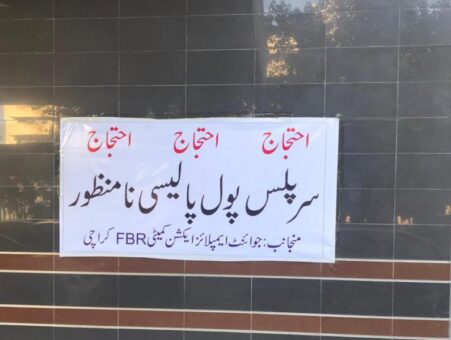 احتجاج احتجاج احتجاج
سرپلس پول پالیسی نا منظور
منجانب: جوائنٹ ایمپلائز ایکشن کمیٹی FBR کراچی